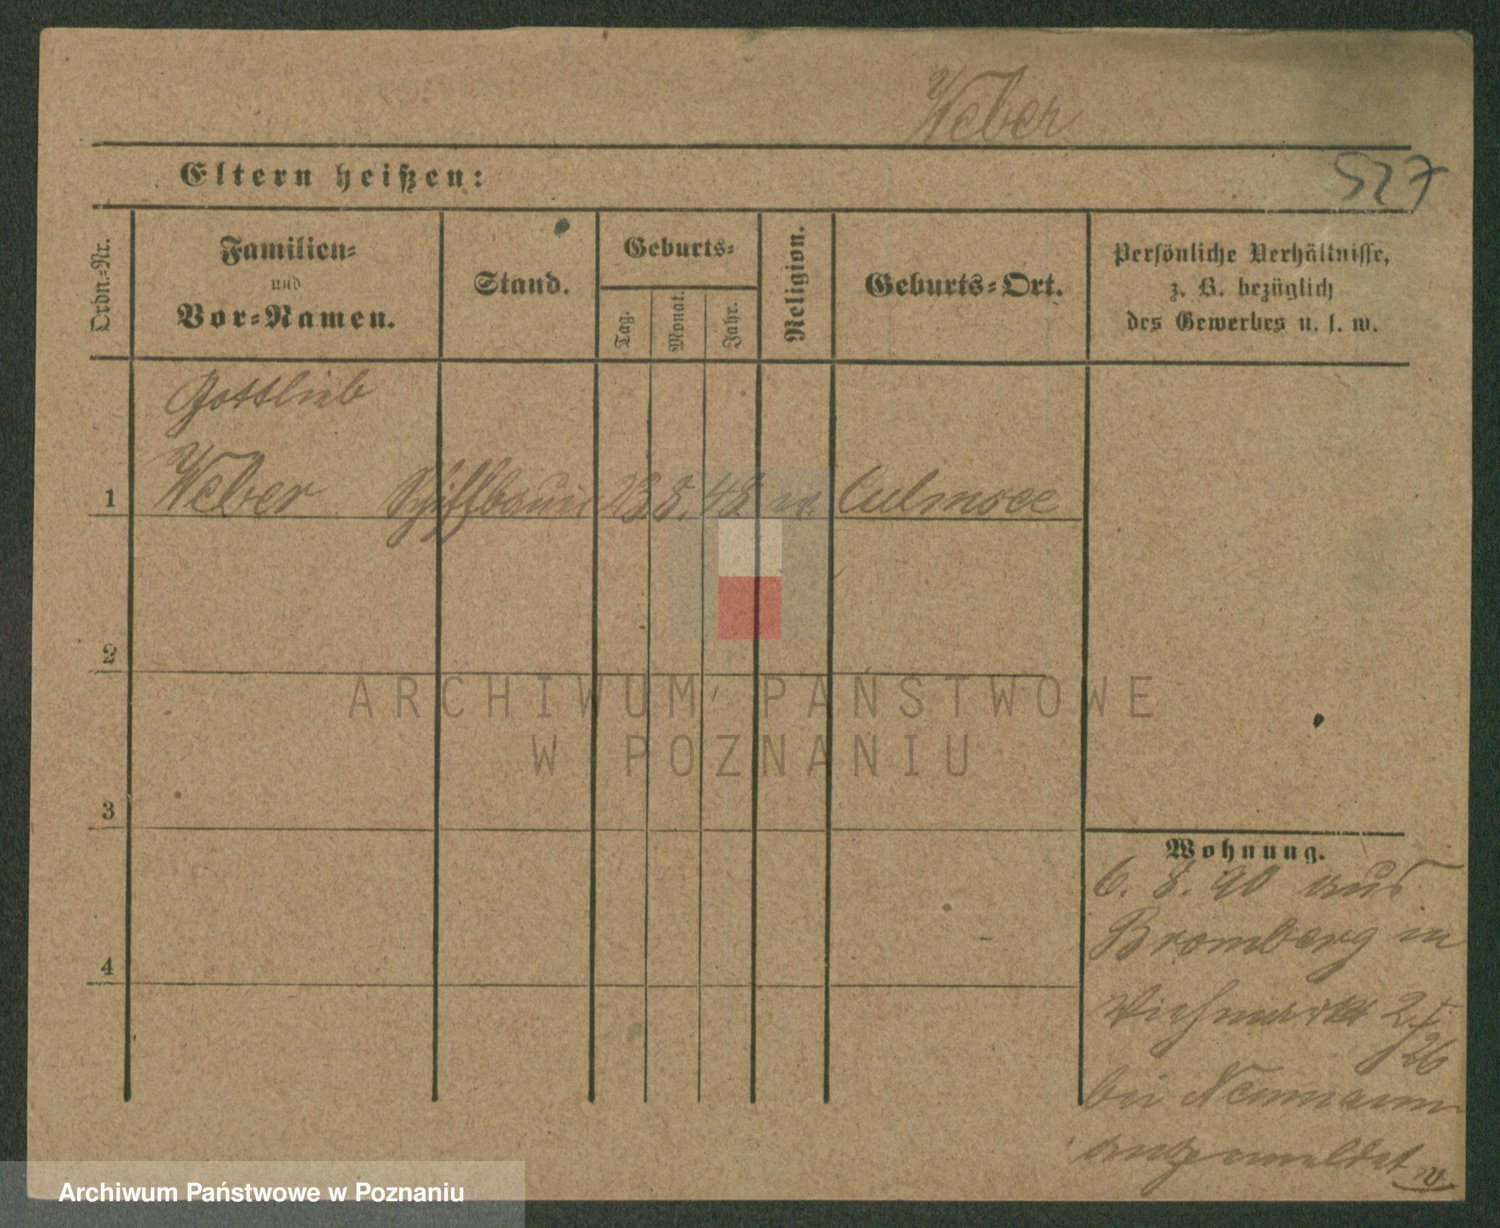 Weber
527
Eltern heißen:
Ordn.-Nr.
Familien-
und
Vor-Namen.
Stand.
Geburts-
Tag.
Monat.
Jahr.
Religion.
Geburts-Ort.
Persönliche Verhältnisse,
z. B. bezüglich
des Gewerbes u. s. w.
Gottlieb
1 Weber Schiffbauer 23 8. 48 Culmsee
2
3
4
Wohnung.
6. 8. 90 aus
Bromberg in
Viehmarkt
26
bei Neumann
angemeldet
ARCHIWUM PAŃSTWOWE
W POZNANIU
Archiwum Państwowe w Poznaniu